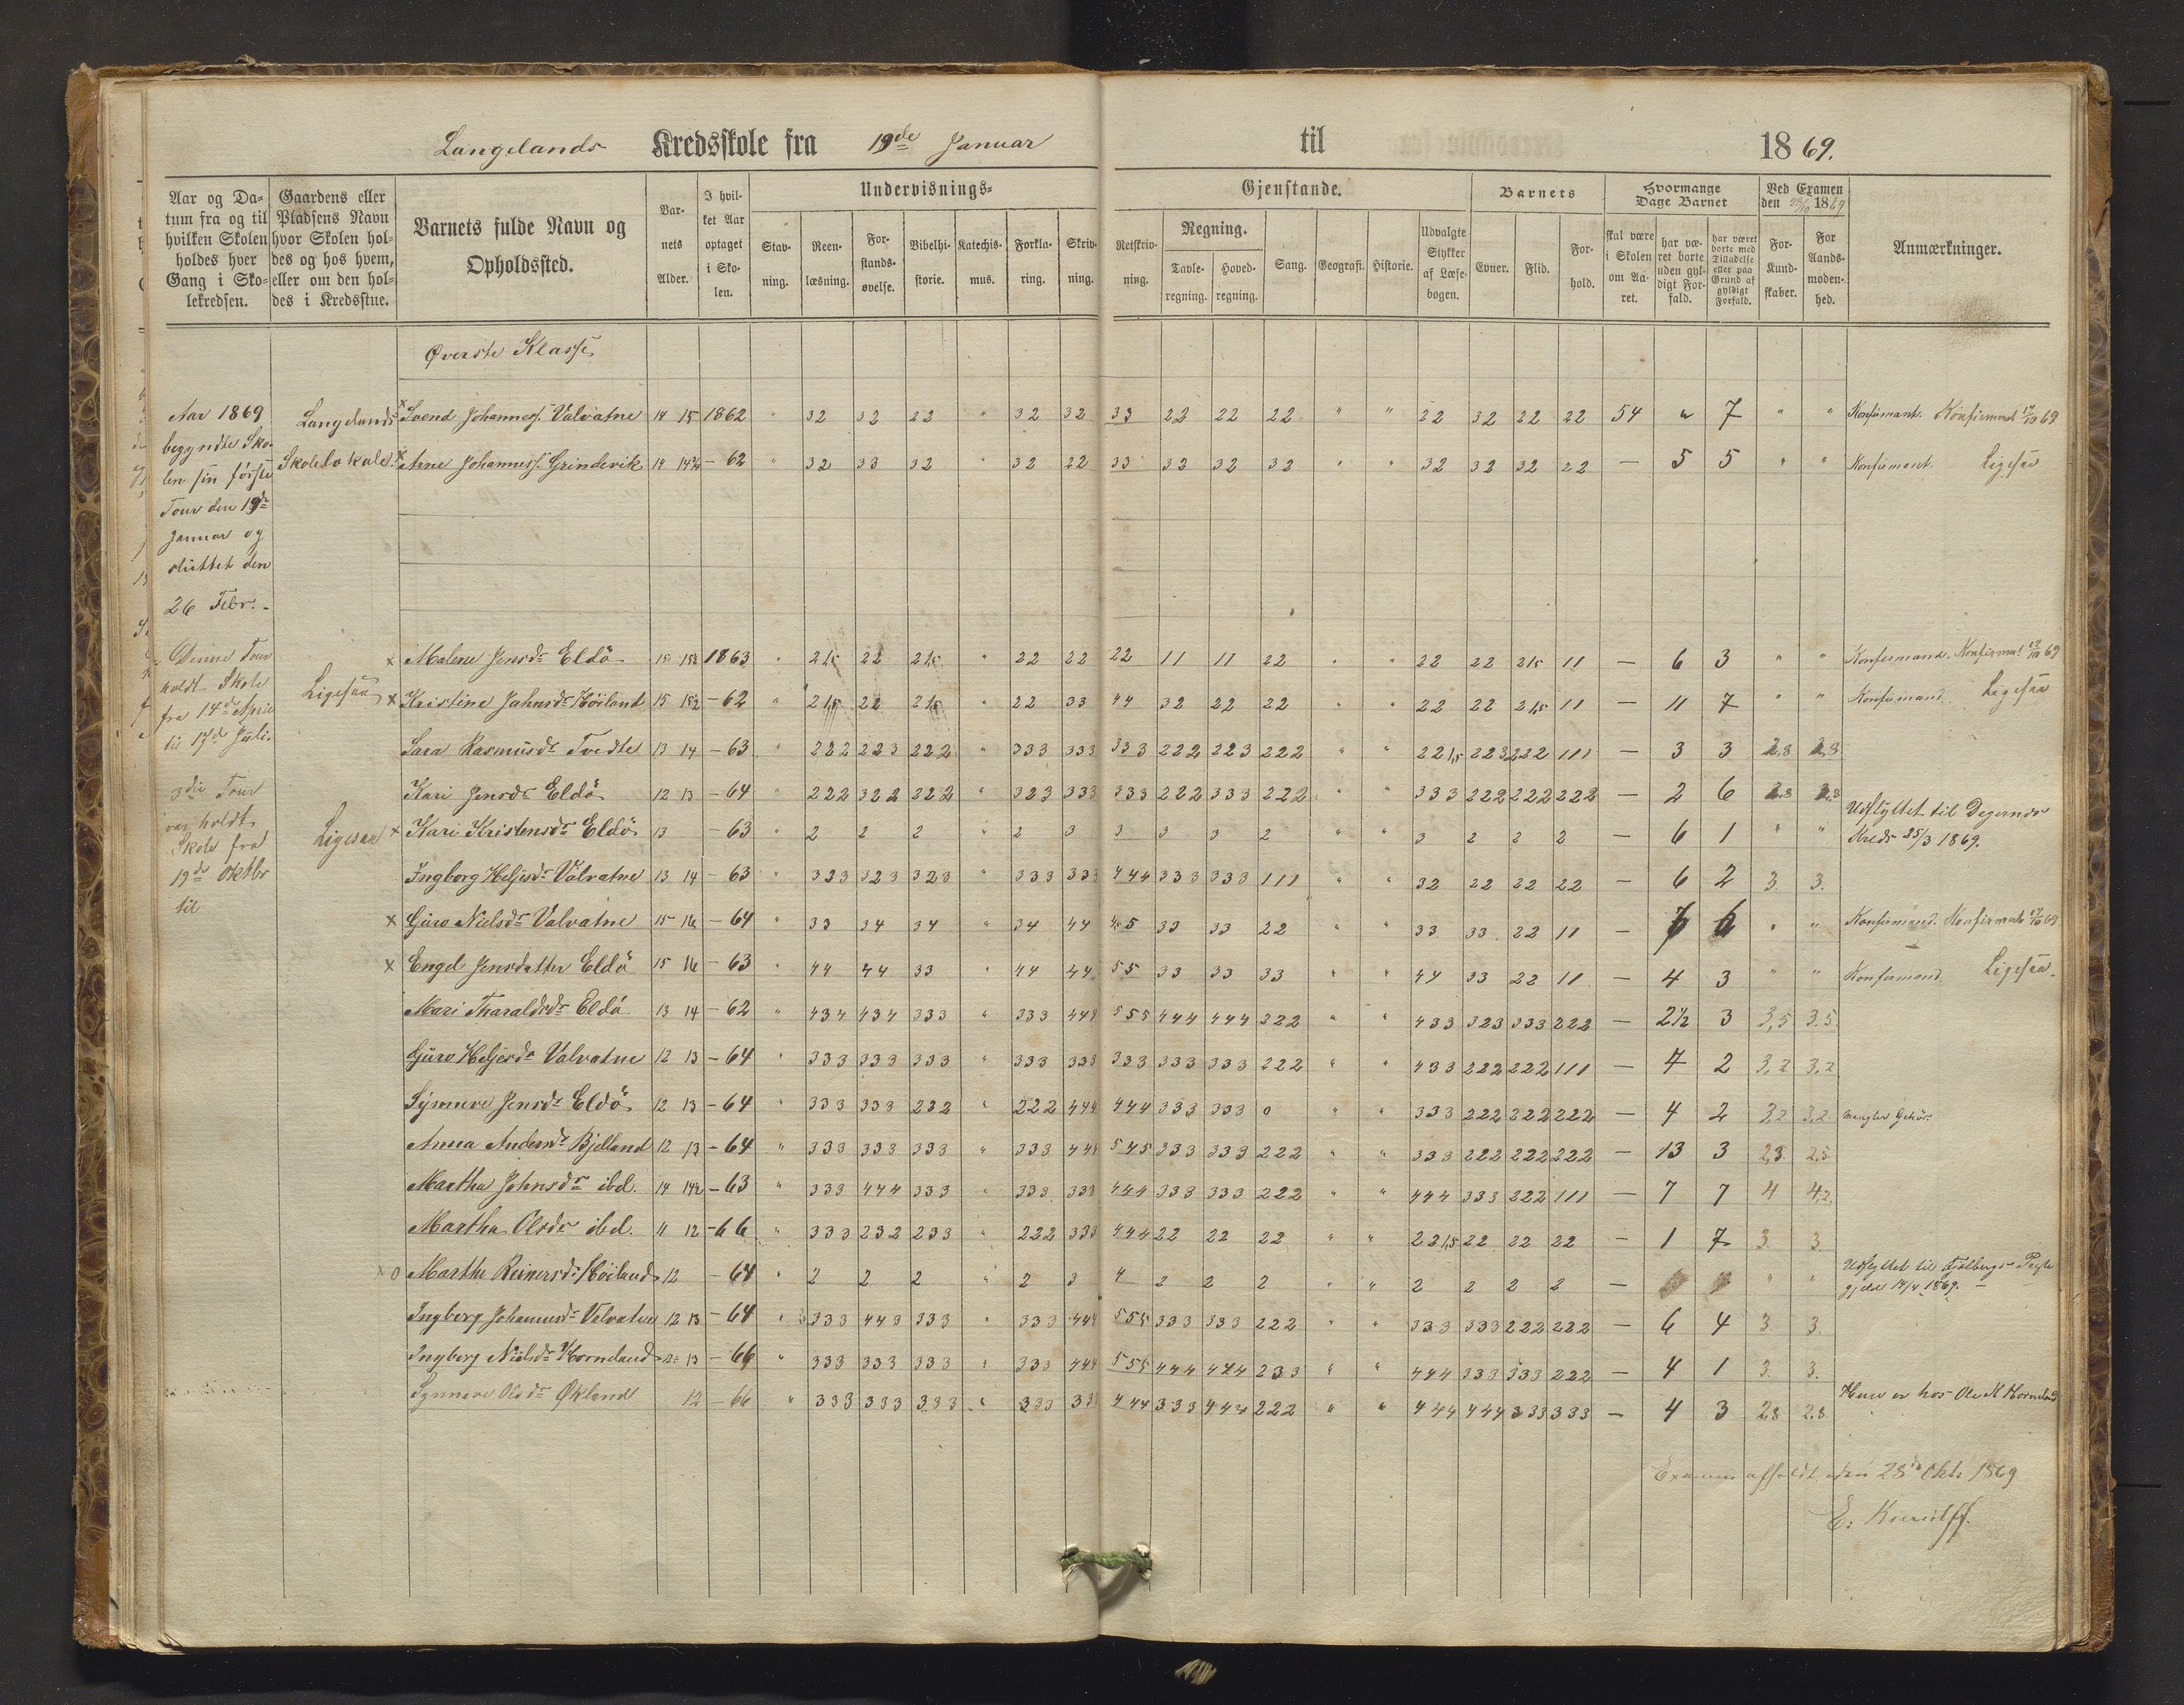 Langelands Kredsskole fra 19de Januar til 1869.
Aar og Da- tum fra og til hvilken Skolen holdes hver Gang i Sko- lekredsen.
Gaardens eller Pladsens Navn hvor Skolen hol- des og hos hvem, eller om den hol- des i Kredsstue.
Barnets fulde Navn og Opholdssted.
Bar- nets Alder.
I hvil- ket Aar optaget i Sko- len.
Undervisnings- Gjenstande.
Stav- ning. Reen- læsning. For- stands- øvelse. Bibelhi- storie. Katechis- mus. Forkla- ring. Skriv- ning. Retskriv- ning.
Regning. Tavle- regning. Hoved- regning.
Sang. Geografi. Historie. Udvalgte Stykker af Læse- bogen.
Barnets Evner. Flid. For- hold.
Hvormange Dage Barnet
skal være i Skolen om Aa- ret. har væ- ret borte uden gyl- digt For- fald. har været borte med Tilladelse eller paa Grund af gyldigt Forfald.
Ved Examen den 28/10 1869
For- Kund- skaber. For Aands- moden- hed.
Anmærkninger.
Øverste Klasse
Aar 1869
begyndte Sko-
len sin første
Tour den 19de
Januar og
sluttet den
26 Febr.-
Langelands
Skolelokale.
x Svend Johannes. Valvatne 14 15 1862 " 32 32 22 " 32 32 33 22 22 22 " " 22 32 22 22 54 " 7 " " Konfirmant. Konfirmeret 17/10 69
x Arne Johannes. Grindevik 14 14½ - 62 " 32 33 32 " 32 22 33 32 32 32 " " 32 32 32 22 — 5 5 " " Konfirmant. Ligesaa
Denne Tour
holdt Skole
fra 14de April
til 17de Juli.
Ligesaa
x Malene Jensdr Eldö 15 15½ 1863 " 21,5 22 21,5 " 22 22 22 11 11 22 " " 22 22 21,5 11 — 6 3 " " Konfirmand. Konfirmet 17/10 69
x Kristine Jahnsdr Höiland 15 15½ - 62 " 21,5 22 21,5 " 22 33 44 32 22 22 " " 22 22 21,5 11 — 11 7 " " Konfirmand. Ligesaa
Sara Rasmusdr Tvedte 13 14 - 63 " 222 223 222 " 333 333 333 222 223 222 " " 221,5 223 222 111 — 3 3 2,8 2,8
3die Tour
var holdt
Skole fra
19de Oktbr
til
Ligesaa
Kari Jensdr Eldö 12 13 - 64 " 222 322 222 " 323 333 333 222 333 222 " " 333 222 222 222 — 2 6 2,8 2,8
x Kari Kristensdr Eldö 13 - 63 " 2 2 2 " 2 3 3 3 3 2 " " 3 2 2 2 — 6 1 " " Udflyttet til Degernæs Kreds 25/3 1869.
Ingborg Heljesdr Valvatne 13 14 - 63 " 323 323 323 " 333 333 444 333 333 111 " " 32 22 22 22 — 6 2 3. 3.
x Guro Nielsdr Valvatne 15 16 - 64 " 33 34 34 " 34 44 4,5 33 33 22 " " 33 33 22 11 — " " Konfirmand. Konfirmet 17/10 69
x Engel Jensdatter Eldö 15 16 - 63 " 44 44 33 " 44 44 55 33 33 33 " " 44 33 22 11 — 4 3 " " Konfirmand. Ligesaa.
Mari Tharaldsdr Eldö 13 14 - 62 " 434 434 333 " 333 444 555 444 444 322 " " 433 323 333 222 — 2½ 3 3,5 3.5.
Guro Heljesdr Valvatne 12 13 - 64 " 333 333 333 " 333 333 333 333 333 222 " " 433 222 222 111 — 7 2 3,2 3,2
Synneve Jensdr Eldö 12 13 - 64 " 333 333 232 " 222 444 444 333 333 0 " " 333 222 222 222 — 4 2 3,2 3,2. mangler Gehör.
Anna Andersdr Bjelland 12 13 - 64 " 333 333 333 " 333 444 545 333 333 222 " " 333 222 222 222 — 13 3 2,8. 2,8.
Martha Johnsdr ibd. 14 14½ - 63 " 333 444 333 " 333 333 444 333 333 222 " " 444 333 222 111 — 7 7 4 4,2.
Martha Olsdr ibd. 11 12 - 66 " 333 232 233 " 222 333 444 22 22 22 " " 221,5 22 22 22 — 1 7 3. 3.
x o Marthe Reinersdr Höiland 12 - 64 " 2 2 2 " 2 3 4 2 2 2 " " 2 2 2 2 — " " Udflyttet til Fjelbergs Præste gjeld 14/4 1869. —
Ingborg Johannesdr Valvatne 12 13 - 64 " 333 443 333 " 333 444 555 333 333 222 " " 333 333 222 222 — 6 4 3 3.
Ingborg Nielsdr Horneland 12 13 - 66 " 333 333 333 " 333 444 555 444 444 233 " " 444 333 333 222 — 4 1 3. 3.
Synneve Olsdr Økland 12 - 66 " 333 333 333 " 333 333 444 333 444 222 " " 444 444 333 333 — 4 3 2,8 2,8 Hun er hos Ole K. Horneland
Examen afholdt den 28de Okt. 1869